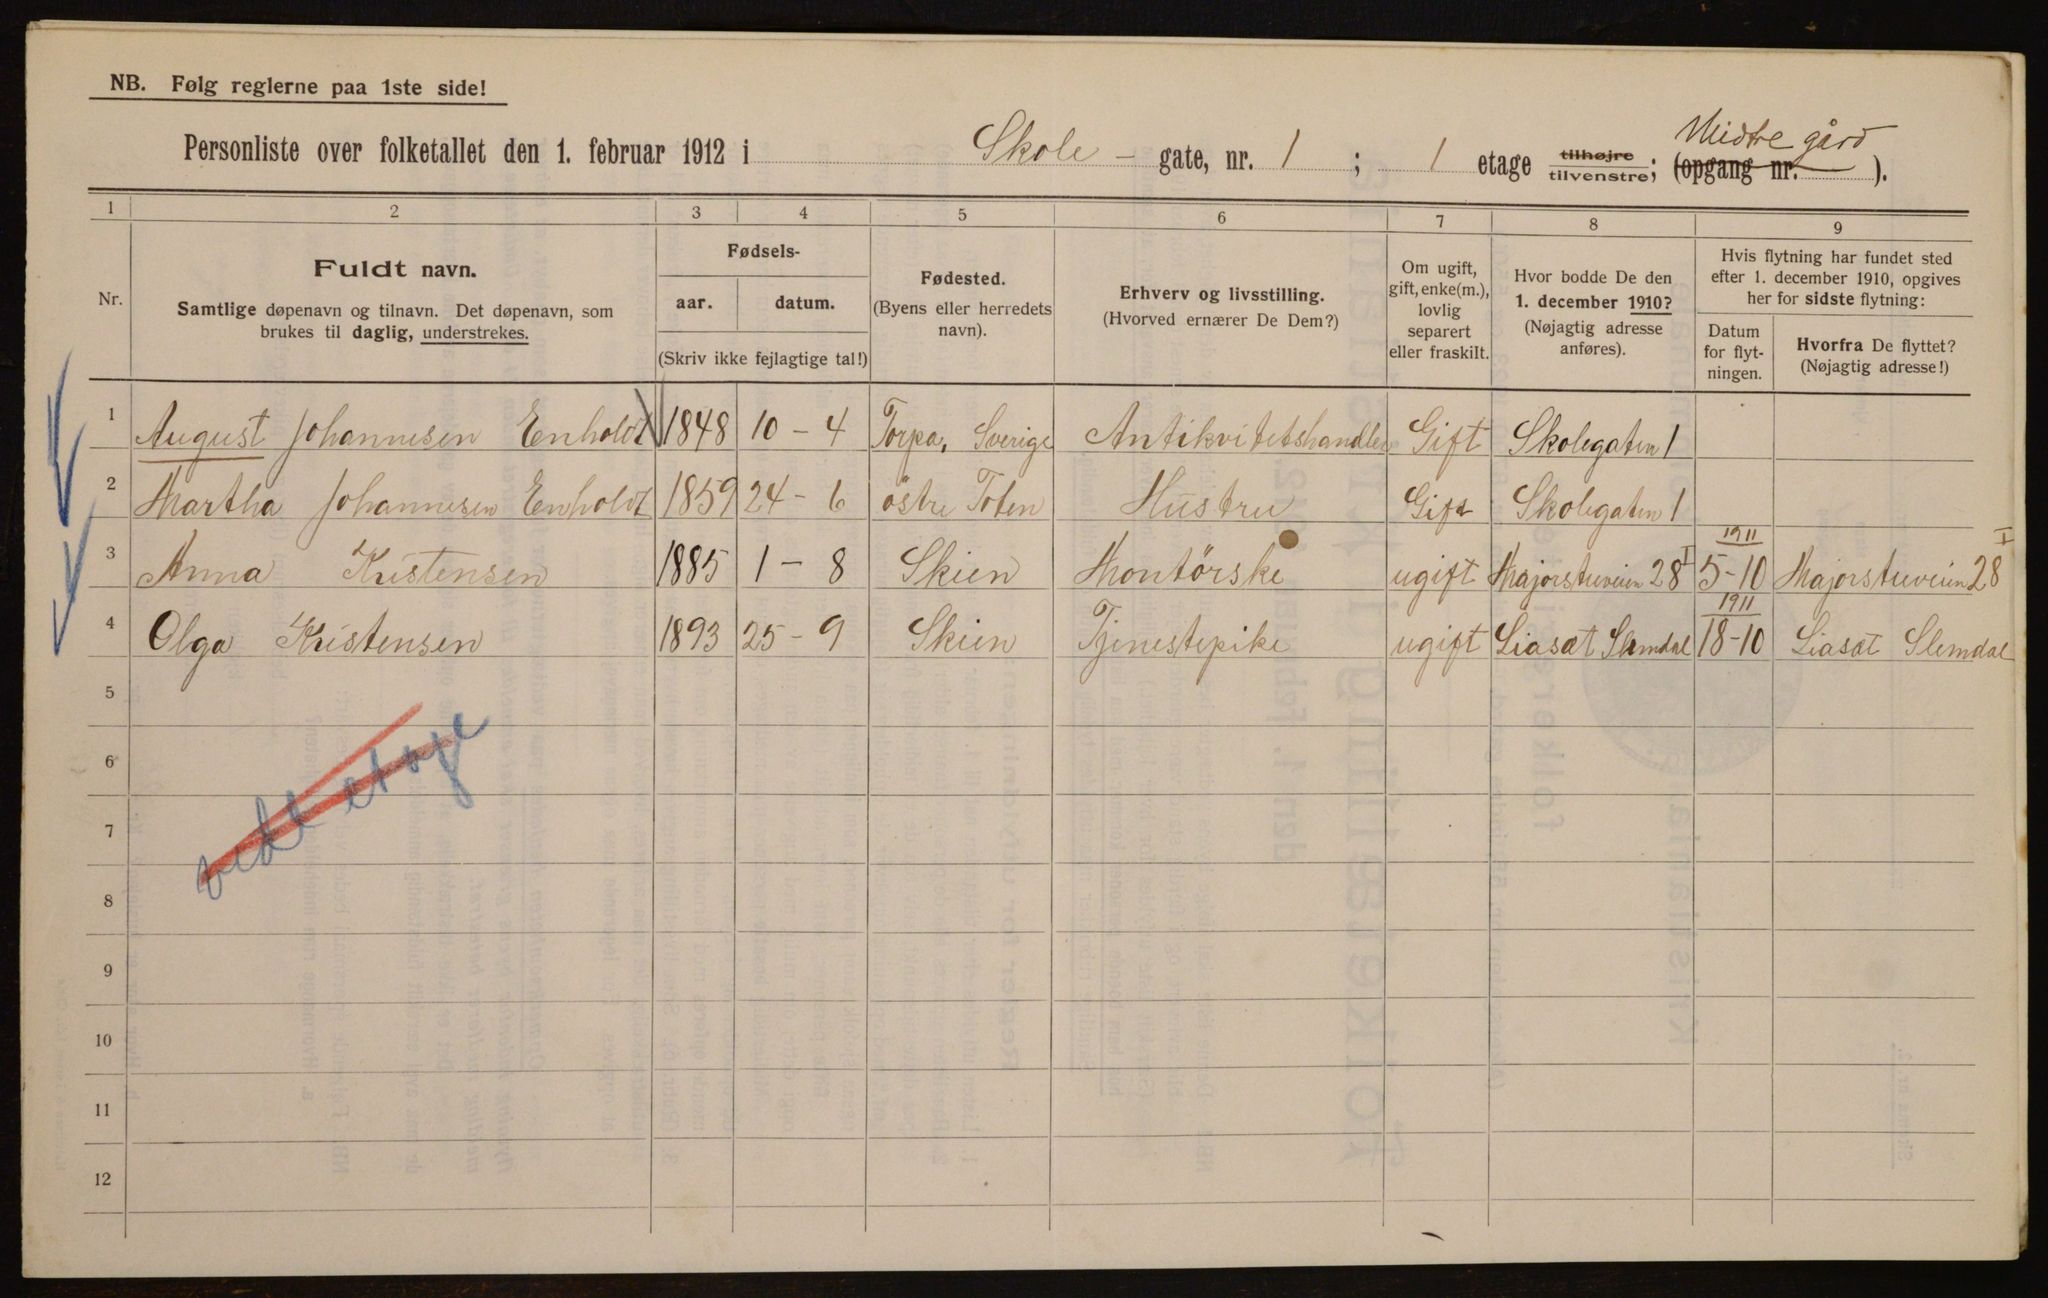 NB. Følg reglerne paa 1ste side!
Midtre gård
Personliste over folketallet den 1. februar 1912 i Skole- gate, nr. 1 ; 1 etage tilhøjre tilvenstre; (opgang nr. ).
1 2 3 4 5 6 7 8 9
Nr.
Fuldt navn.
Samtlige døpenavn og tilnavn. Det døpenavn, som
brukes til daglig, understrekes.
Fødsels-
aar. datum.
(Skriv ikke fejlagtige tal!)
Fødested.
(Byens eller herredets
navn).
Erhverv og livsstilling.
(Hvorved ernærer De Dem?)
Om ugift,
gift, enke(m.),
lovlig
separert
eller fraskilt.
Hvor bodde De den
1. december 1910?
(Nøjagtig adresse
anføres).
Hvis flytning har fundet sted
efter 1. december 1910, opgives
her for sidste flytning:
Datum
for flyt-
ningen.
Hvorfra De flyttet?
(Nøjagtig adresse!)
1 August Johannesen Enholdt 1848 10-4 Torpa, Sverige Antikvitetshandler Gift Skolegaten 1
2 Martha Johannesen Enholdt 1859 24-6 östre Toten Hustru Gift Skolegaten 1
3 Anna Kristensen 1885 1-8 Skien Montörske ugift Majorstuveien 28 I 1911 5-10 Majorstuveien 28 I
4 Olga Kristensen 1893 25-9 Skien Tjenestepike ugift Liasæt Slemdal 1911 18-10 Liasæt Slemdal
5
6
7
8
9
10
11
12
vidt etage